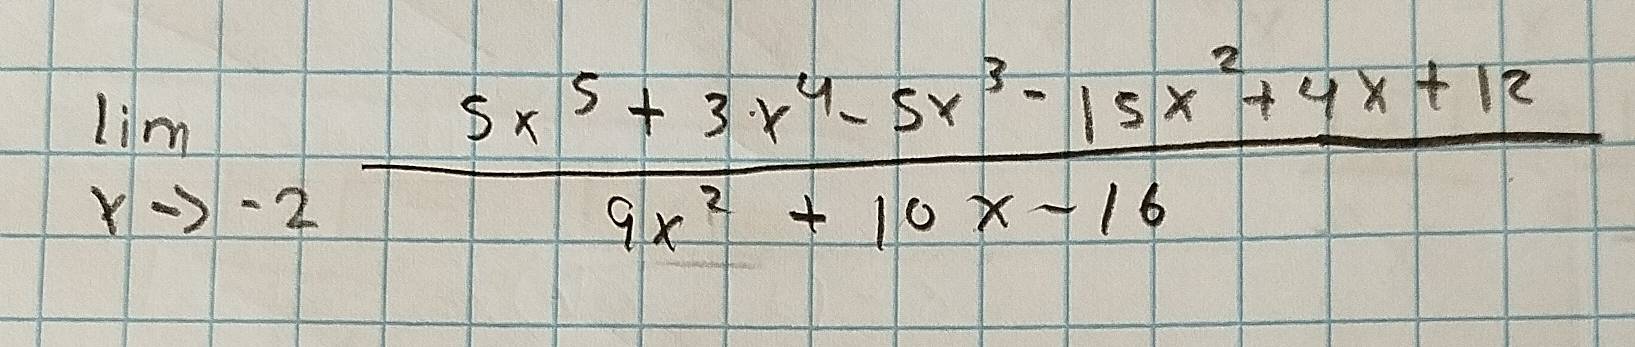 lim x→-2 (5x⁵ + 3x⁴ - 5x³ - 15x² + 4x + 12) / (9x² + 10x - 16)